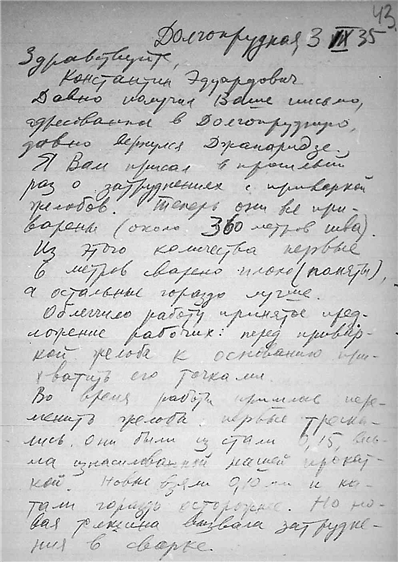 43.
Долгопрудная 3 IX 35
Здравствуйте,
Константин Эдуардович
Давно получил Ваше письмо,
адресованное в Долгопрудную,
давно вернулся Джапаридзе.
Я Вам писал в прошлый
раз о затруднениях с приваркой
желобов. Теперь они все при-
варены (около 360 метров шва).
Из этого количества первые
6 метров сварено плохо (помяты),
а остальные гораздо лучше.
Облегчило работу принятое пред-
ложение рабочих: перед привар-
кой желоба к основанию при-
хватить его точками.
Во время работы пришлось пере-
менить желоба, первые треска-
лись. Они были из стали 0,15, весь-
ма изнасилованной нашей прокат-
кой. Новые взяли 0,10 мм и ка-
тали гораздо осторожнее. Но но-
вая толщина вызвала затрудне-
ния в сварке.